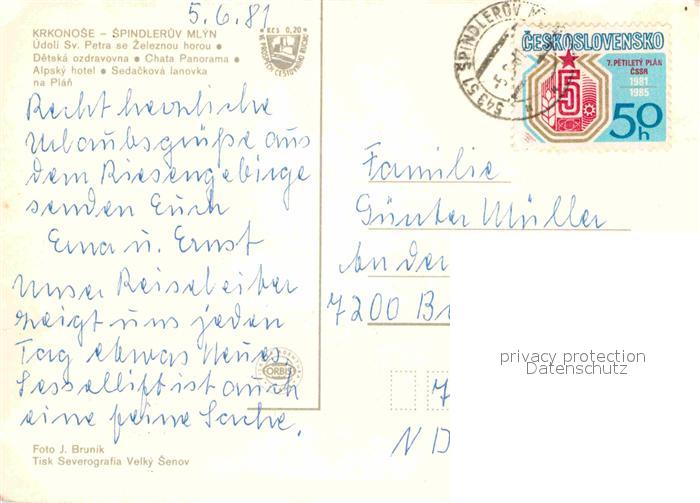 5.6.81
KRKONOŠE – ŠPINDLERŮV MLÝN
Údolí Sv. Petra se Železnou horou •
Dětská ozdravovna • Chata Panorama •
Alpský hotel • Sedačková lanovka
na Pláň
Kčs 0,20
Recht herzliche
Urlaubsgrüße aus
dem Riesengebirge
senden Euch
Erna u. Ernst
Unser Reiseleiter
zeigt uns jeden
Tag etwas Neues.
Sessellift ist auch
eine feine Sache.
ORBIS
Foto J. Bruník
Tisk Severografia Velký Šenov
543 51 ŠPINDLERŮV M
ČESKOSLOVENSKO
7. PĚTILETÝ PLÁN
ČSSR
1981
1985
5
50h
Familie
Günter Müller
An der
7200 B
7
D
privacy protection
Datenschutz